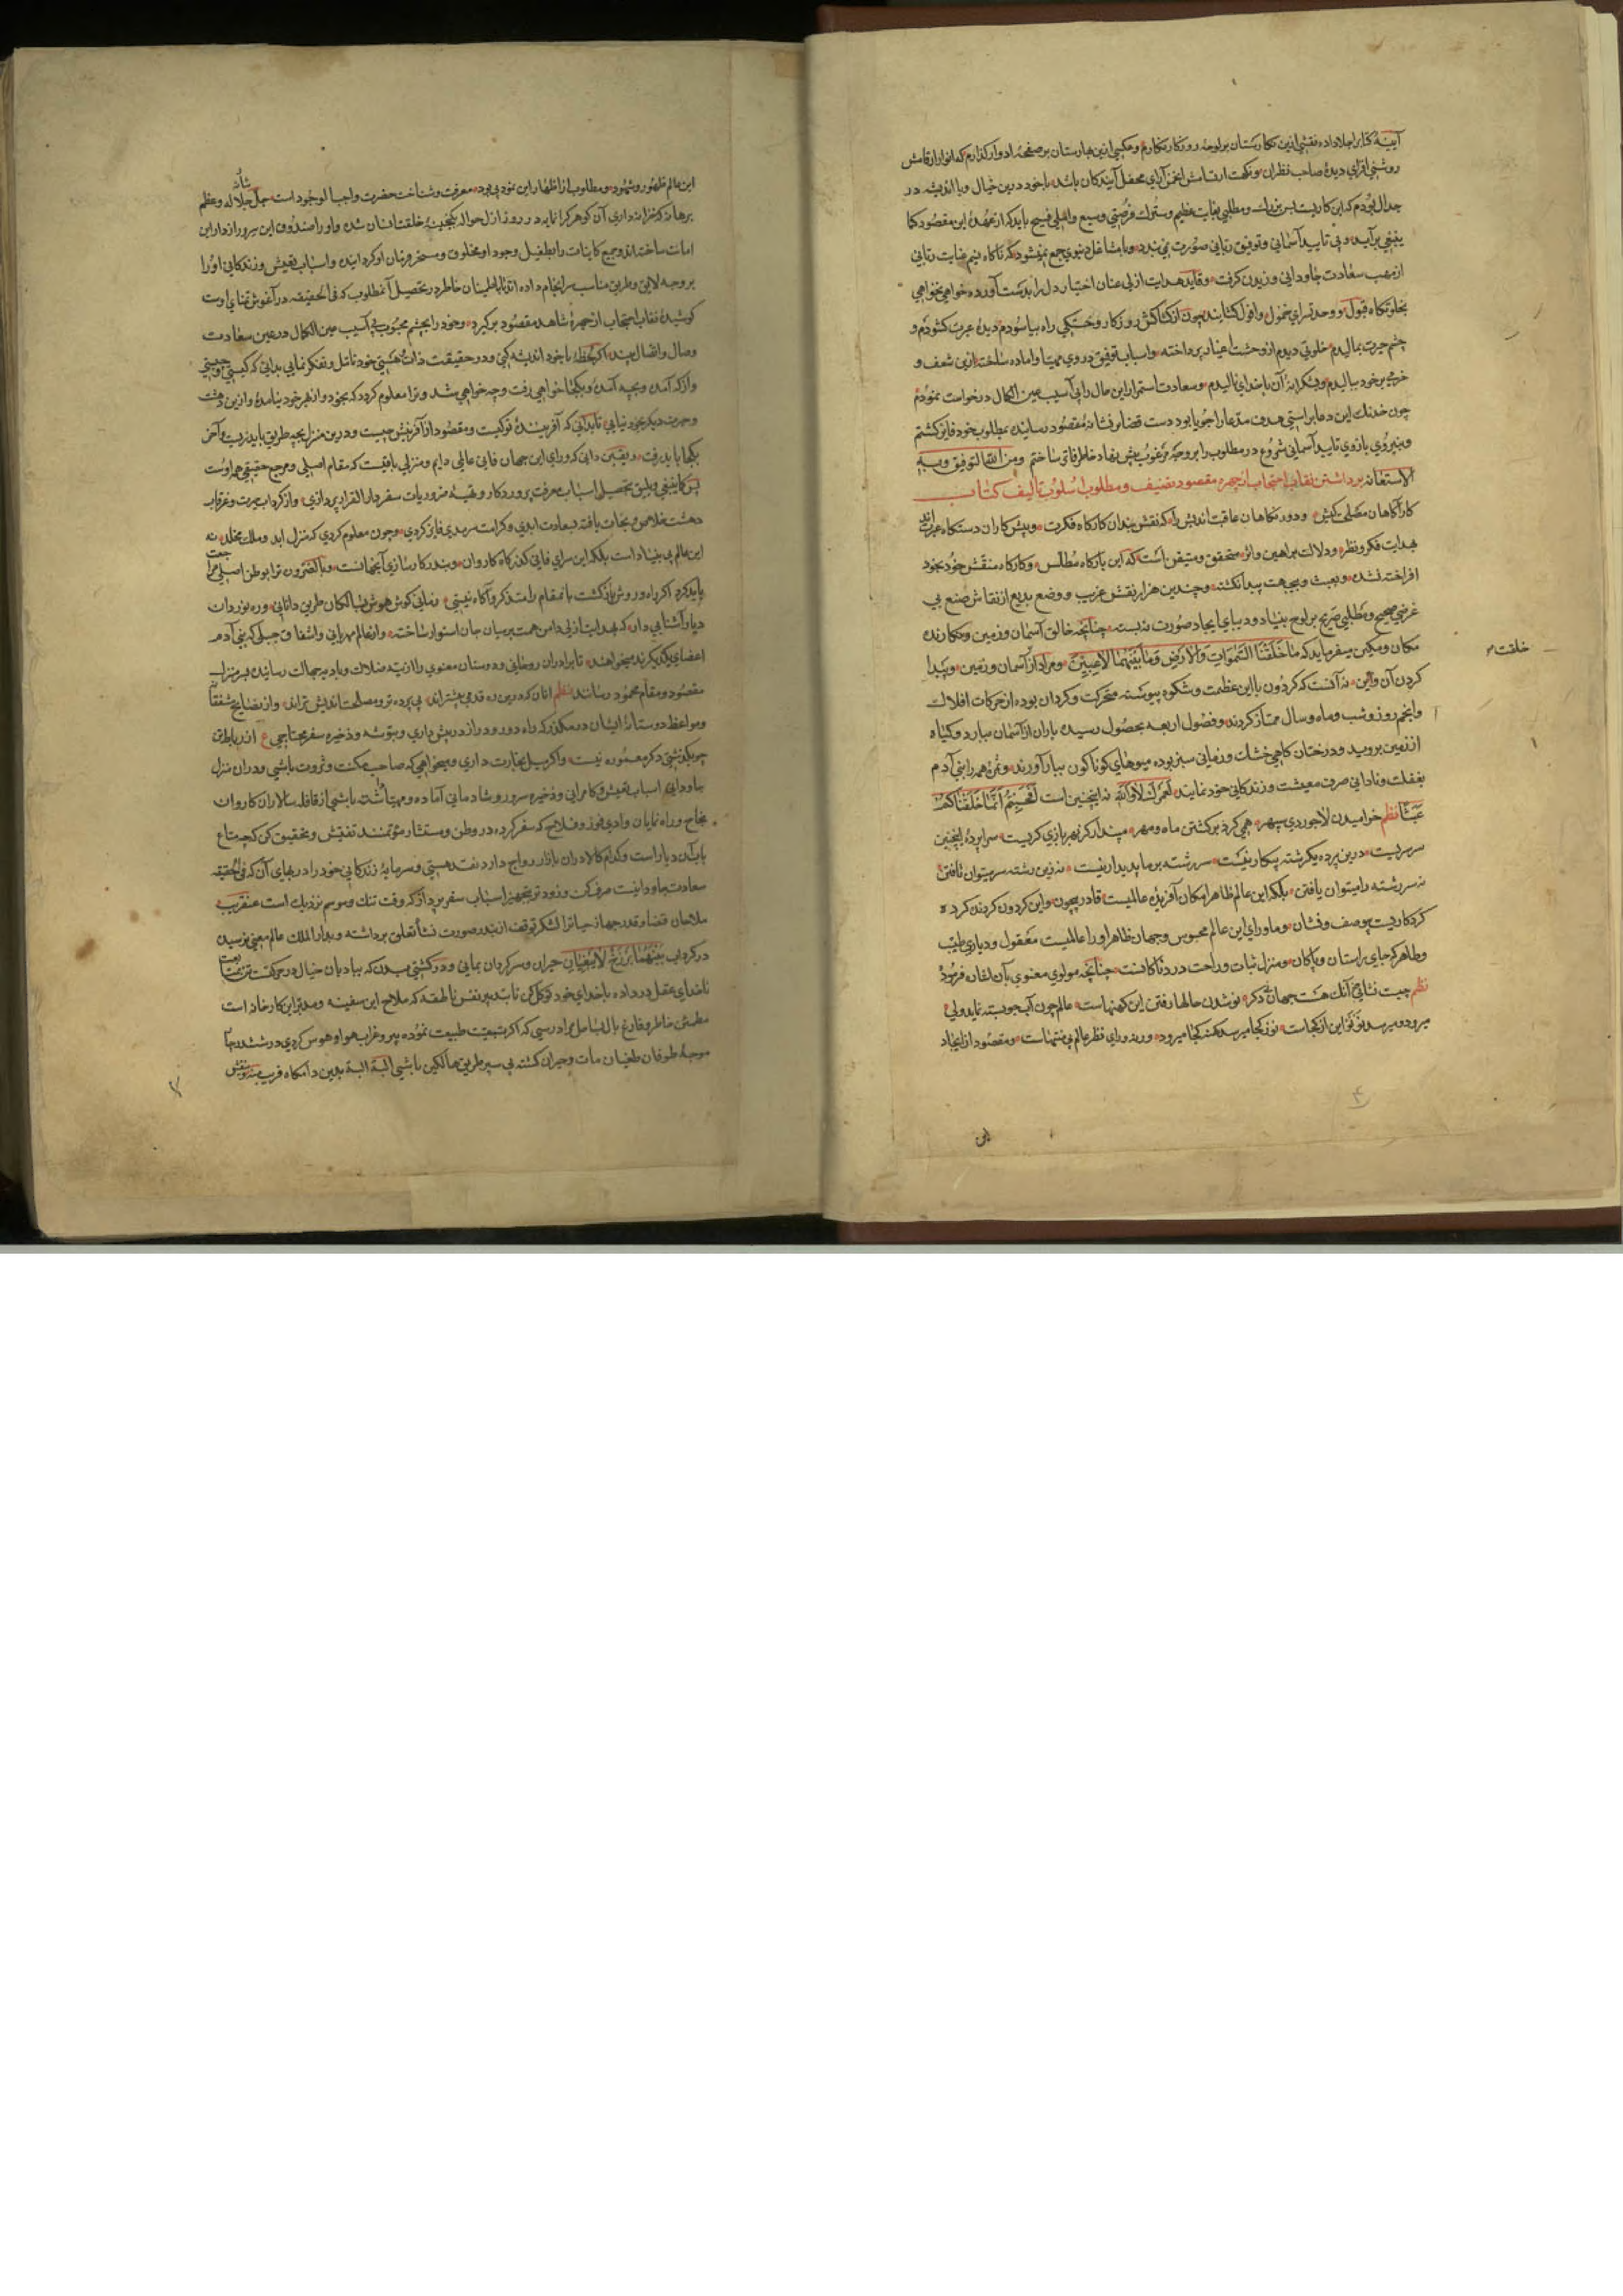 آیینهٔ کذا بر اجلا داده نقشی ازین نگارستان بر لوحهٔ روزکار نگارم و عکسی ازین بهارستان بر صفحهٔ ادوار گذارم که انوار ارقامش
روشنی افزای دیدهٔ صاحب نظران و نکهت ارتسامش انجمن آرای محفل آیندکان باشد با خود درین خیال و با اندیشه در
جدال بودم که این کاریست بس بزرک و مطلبی بغایت عظیم و سترک فرصتی وسیع و املی فسیح باید که از عهدهٔ این مقصود کما
ینبغی برآید و بی تایید آسمانی و توفیق ربانی صورت نمی بندد و با مشاغل دنیوی جمع نمیشود که ناکاه نسیم عنایت ربانی
از مهب سعادت جاودانی وزیدن کرفت و قاید هدایت ازلی عنان اختیار دل را بدست آورده خواهی نخواهی
بخلوتکاه قبول و وحدتسرای خمول و افول کشانید چون از کشاکش روزکار و خستکی راه بیاسودم دیدهٔ عبرت کشودم و
چشم حیرت بمالیدم خلوتی دیدم از وحشت اغیار پرداخته و اسباب توفیق در وی مهیا و آماده ساخته ازین شعف و
خرمی بر خود ببالیدم و بشکرانهٔ آن با خدای نالیدم و سعادت استمرار این حال را بی آسیب عین الکمال درخواست نمودم
چون خدنک این دعا براستی هدف مدعا را جویا بود دست قضا بر نشانهٔ مقصود رسانید بمطلوب خود فایز کشتم
و بنیروی بازوی تایید آسمانی شروع در مطلوب را بر وجه مرغوب پیش نهاد خاطر فاتر ساختم و من الله التوفیق و به
الاستعانه برداشتن نقاب احتجاب از چهرهٔ مقصود تصنیف و مطلوب اسلوب تألیف کتاب
کارآکاهان مصلی کیش و دور نکاهان عاقبت اندیش را که نقش بندان کارکاه فکرت و پیش کاران دستکاه عبرت اند
بهدایت فکر و نظر و دلالت براهین و اثر متحقق و متیقن است که این بارکاه مطلس و کارکاه منقش خود بخود
افراخته نشده و بعبث و بیجهت پیدا نکشته و چندین هزار نقش غریب و وضع بدیع از نقاش صنع بی
غرضی صحیح و مطلبی صریح بر لوح بنیاد و دیبای ایجاد صورت نبسته چنانچه خالق آسمان و زمین و نکارنده
مکان و مکین میفرماید که ما خلقنا السموات والارض وما بینهما لاعبین و مراد از آسمان و زمین و پیدا
خلقت
کردن آن و این نه آنست که کردون با این عظمت و شکوه پیوسته متحرک و کردان بوده از حرکات افلاک
و انجم روز و شب و ماه و سال ممتاز کردند و فصول اربعه بحصول رسیده باران از آسمان ببارد و کیاه
از زمین بروید و درختان کاهی خشک و زمانی سبز بوده میوهای کوناکون ببار آورند و ثمرهٔ همه را بنی آدم
بغفلت و نادانی صرف معیشت و زندکانی خود نمایند لعمرک لا والله نه اینچنین است افحسبتم انما خلقناکم
عبثا نظم خرامیدن لاجوردی سپهر همی کرد بر کشتن ماه و مهر مپندار کز بهر بازی کریست سراپردهٔ اینچنین
سرسریست درین پرده یکرشته بیکار نیست سررشته بر ما پدیدار نیست نه زین رشته سر میتوان تافتن
نه سررشته را میتوان یافتن بلکه این عالم ظاهر امکان آفریدهٔ عالمیست قادر بیچون و این کردون کردنده کرده
کردکاریست بیوصف و نشان و ماورای این عالم محسوس و جهان ظاهر او را عالمیست معقول و دیاری طیب
و طاهر که جای راستان و پاکان و منزل ثبات و راحت دردناکانست چنانچه مولوی معنوی بآن لقان فرمود
نظم چیست نشانی آنک هست جهانی دکر نو شدن حالها رفتن این کهنهاست عالم چون آب جو بسته نماید ولی
میرود و میرسد نو نو این از کجاست نو ز کجا میرسد کهنه کجا میرود ورنه ورای نظر عالم بی منتهاست و مقصود از ایجاد
این
این عالم ظهور و شهود و مطلوب از اظهار این نمود بی بود معرفت و شناخت حضرت واجب الوجود است جل جلاله و عظم شانه
برهانه که خزانه داری آن کوهر کرانمایه در روز ازل حواله بکنجینهٔ خلقت انسان شده و او را صندوق این سر و رازدار این
امانت ساخته اند و جمیع کاینات را بطفیل وجود او مخلوق و مسخر فرمان او کردانیده و اسباب تعیش و زندکانی او را
بر وجه لایق و طریق مناسب سرانجام داده اند تا باطمینان خاطر در تحصیل آنمطلوب که فی الحقیقه در آغوش تمنای اوست
کوشیده نقاب احتجاب از چهرهٔ شاهد مقصود برکیرد و خود را بچشم محبوب بی آسیب عین الکمال در عین سعادت
وصال و اتصال بیند اکر لحظهٔ با خود اندیشه کنی و در حقیقت ذات هستی خود تأمل و تفکر نمایی بدانی که کیستی و چیستی
و از که آمدهٔ و بچه آمدهٔ و بکجا خواهی رفت و چه خواهی شد و ترا معلوم کردد که بخود و از بهر خود نیامدهٔ و ازین دهشت
و حیرت دیکر بخود نیایی تا بدانی که آفرینندهٔ تو کیست و مقصود از آفرینش چیست و درین منزل بچه طریق باید زیست و آخر
بکجا باید رفت و یقین دانی که ورای این جهان فانی عالمی دایم و منزلی باقیست که مقام اصلی و مرجع حقیقی همه اوست
پس کما ینبغی و یلیق بتحصیل اسباب معرفت پروردکار و تهیهٔ ضروریات سفر دار القرار پردازی و از کرداب حیرت و غرقاب
دهشت خلاص و نجات یافته بسعادت ابدی و کرامت سرمدی فایز کردی و چون معلوم کردی که منزل ابد و ملک مخلد نه
این عالم بی بنیاد است بلکه این سرای فانی کذرکاه کاروان و بندر کارسازی آنجهانست و بالضرورت ترا بوطن اصلی مراجعت
باید کرد اکر راه و روش بازکشت بآنمقام را متذکر و آکاه نیستی زمانی کوش هوش بسالکان طریق دانایی و ره نوردان
دیار آشنایی دار که بهدایت ازلی دامن همت بر میان جان استوار ساخته و از عالم مهربانی و اشفاق جبلی که بنی آدم
اعضای یکدیکرند میخواهند تا برادران روحانی و دوستان معنوی را از تیه ضلالت و بادیه جهالت رسانیده بسر منزل
مقصود و مقام محمود رسانند نظم آنان که درین ره قدمی پیشترند بی پرده تر و مصلحت اندیش ترند و از نصایح مشفقانه
و مواعظ دوستانهٔ ایشان در مکذر که راه دور و دراز در پیش داری و بتوشه و ذخیره سفر محتاجی ع از رباط تن
چو بکذشتی دکر معموره نیست و اکر میل تجارت داری و میخواهی که صاحب مکنت و ثروت باشی و در آن منزل
جاودانی اسباب تعیش و کامرانی و ذخیره سرور و شادمانی آماده و مهیا داشته باشی از قافله سالاران کاروان
نجاح و راه نمایان وادی فوز و فلاح که سفر کرده در وطن و مستشار مؤتمنند تفتیش و تحقیق کن که چه متاع
باب آن دیار است و کدام کالا در آن بازار رواج دارد نقد هستی و سرمایهٔ زندکانی خود را در بهای آن که فی الحقیقه
سعادت جاودانیست صرف کن و زود تر بتجهیز اسباب سفر پرداز که وقت تنک و موسم نزدیک است عنقریب
ملاحان قضا و قدر جهاز حیات را لنکر توقف از بندر صورت نشأ تعلق برداشته و بدار الملک عالم معنی نرسیده
در کرداب بینهما برزخ لا یبغیان حیران و سرکردان بمانی و در کشتی بدن که ببادبان خیال در حرکت است
ناخدای عقل در داده با خدای خود توکل کن تا بتدبیر نفس ناطقه که ملاح این سفینه و مدبر این کارخانه است
مطمئن خاطر و فارغ بال بساحل مراد رسی که اکر تبعیت طبیعت نموده پیرو غراب هوا و هوس کردی در ششدر
موجهٔ طوفان طغیان مات و حیران کشته پی سپر طریق هالکین باشی البته البته بدین دامکاه فریب